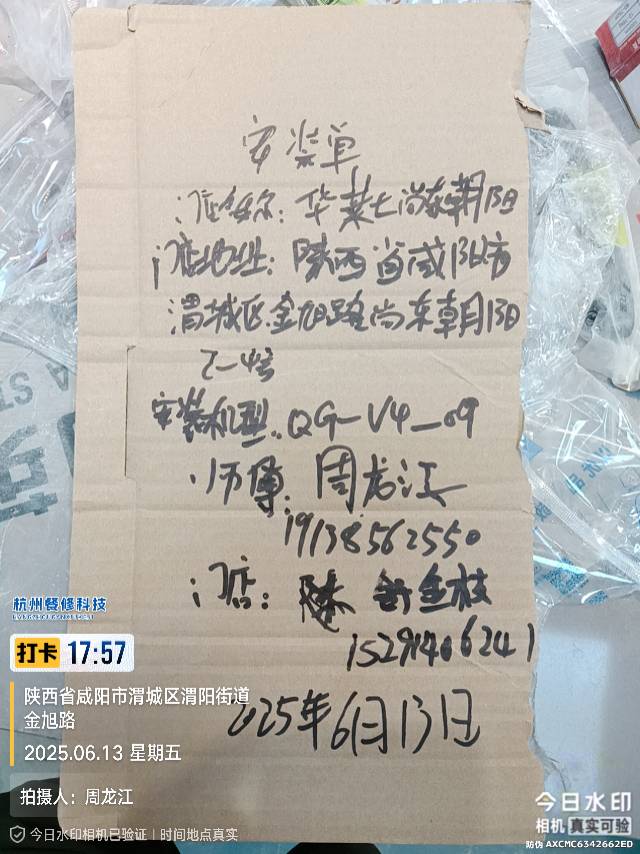 安装单
门店名称：华莱士尚东朝阳
门店地址：陕西省咸阳市
渭城区金旭路尚东朝阳
安装机型：QG-V4-09
师傅：周龙江
19138562550
门店：金枝
15291406241
2025年6月13日
杭州餐修科技
打卡 17:57
陕西省咸阳市渭城区渭阳街道
金旭路
2025.06.13 星期五
拍摄人：周龙江
今日水印相机已验证 | 时间地点真实
今日水印
相机 真实可验
防伪 AXCMC6342662ED